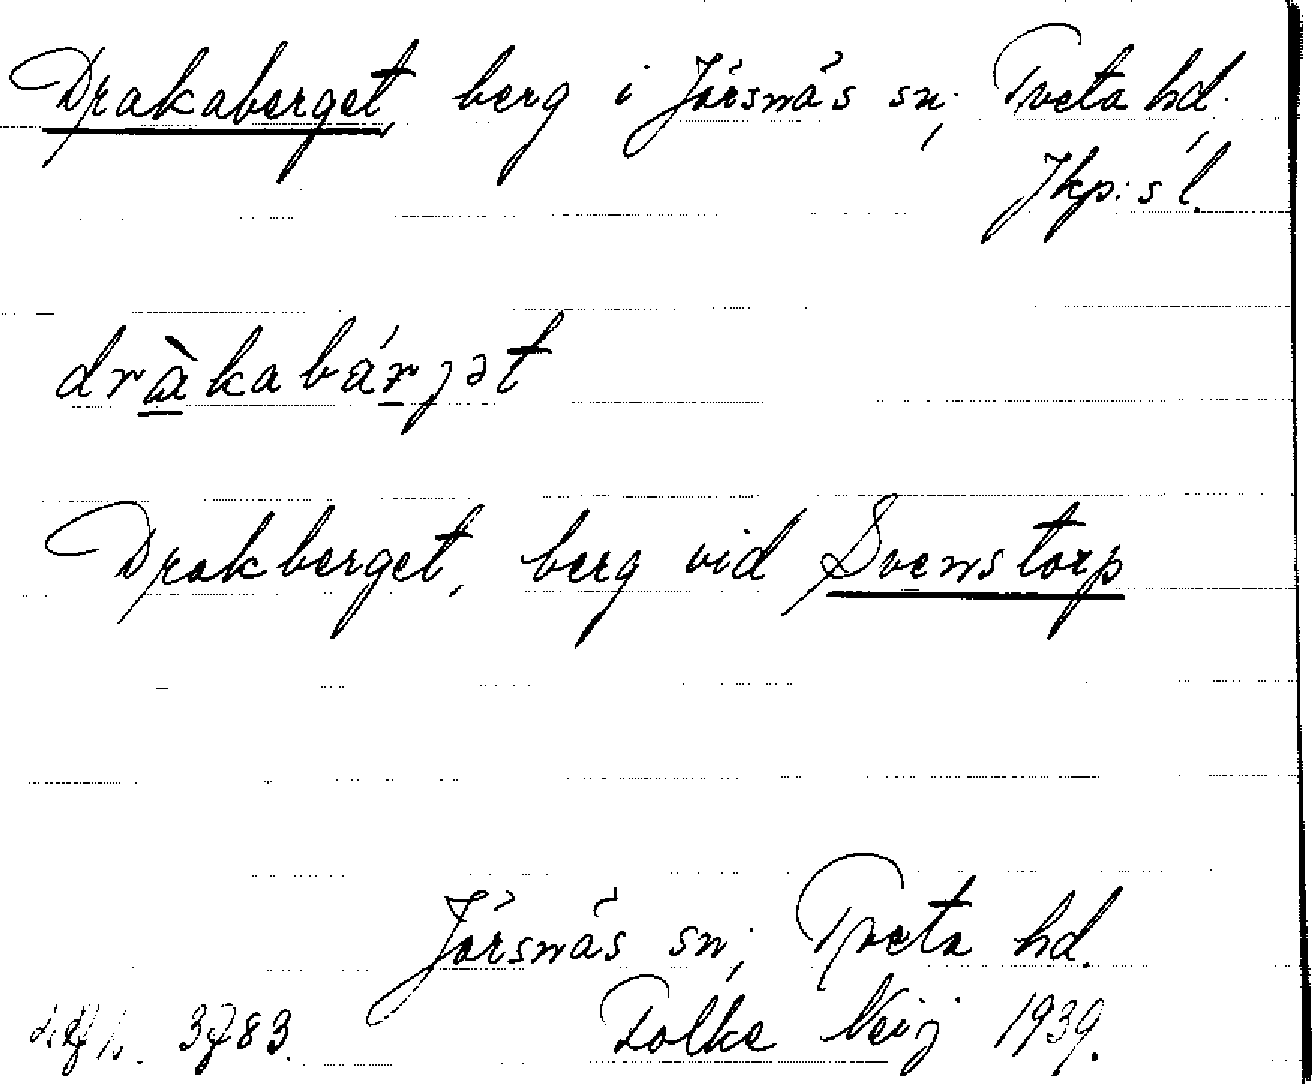 Drakaberget, berg i Järsnäs sn, Tveta hd.
Jkp:s l.
dràkabárjət
Drakberget, berg vid Svenstorp
Järsnäs sn, Tveta hd.
3783. Folke Neij 1939.